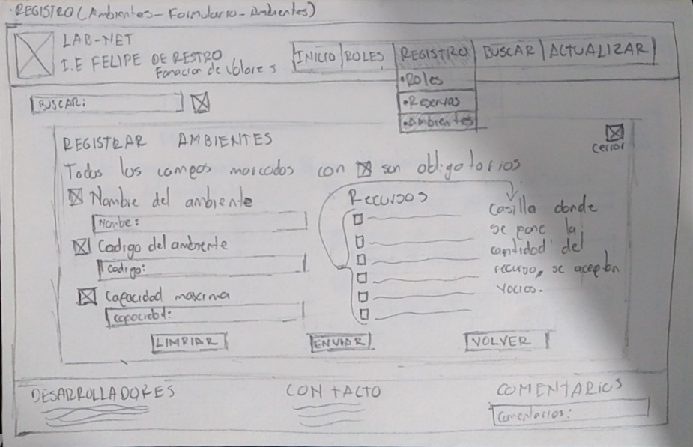 REGISTRO (Ambientes - Formulario - Ambientes)
LAB-NET
I.E FELIPE DE RESTRO
Formacion de Valores
INICIO ROLES REGISTRO BUSCAR ACTUALIZAR
• Roles
• Reservas
• Ambientes
BUSCAR:
REGISTRAR AMBIENTES
cerrar
Todos los campos marcados con son obligatorios
Nombre del ambiente
Nombre:
Codigo del ambiente
codigo:
Capacidad maxima
capacidad:
Recursos
Casilla donde
se pone la
cantidad del
recurso, se aceptan
vacios.
LIMPIAR ENVIAR VOLVER
DESARROLLADORES
CONTACTO
COMENTARIOS
Comentarios: